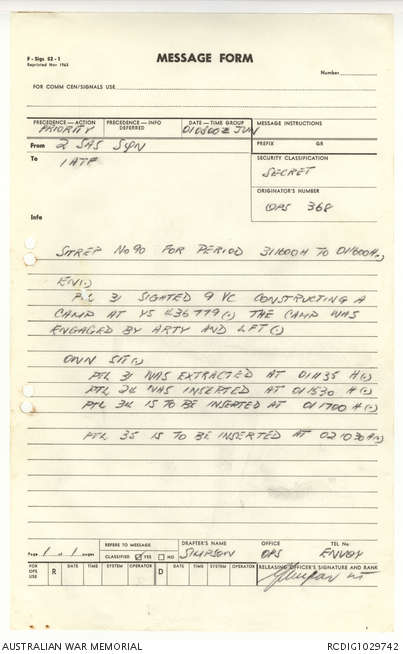 F - Sigs 62 - 1
Reprinted Nov 1965
MESSAGE FORM
Number
FOR COMM CEN/SIGNALS USE
PRECEDENCE — ACTION
PRIORITY
PRECEDENCE — INFO
DEFERRED
DATE — TIME GROUP
010800Z JUN
MESSAGE INSTRUCTIONS
From 2 SAS SQN
PREFIX GR
To 1 ATF
SECURITY CLASSIFICATION
SECRET
ORIGINATOR'S NUMBER
OPS 368
Info
SITREP No 90 FOR PERIOD 311600H TO 011600H(.)
EN(.)
PTL 31 SIGHTED 9 VC CONSTRUCTING A
CAMP AT YS 436779(.) THE CAMP WAS
ENGAGED BY ARTY AND LFT(.)
OWN SIT(.)
PTL 31 WAS EXTRACTED AT 011135 H(.)
PTL 24 WAS INSERTED AT 011530 H(.)
PTL 34 IS TO BE INSERTED AT 011700 H(.)
PTL 35 IS TO BE INSERTED AT 021030H(.)
Page 1 of 1 pages
REFERS TO MESSAGE
CLASSIFIED YES NO
DRAFTER'S NAME
SIMPSON
OFFICE
OPS
TEL No
ENVOY
FOR OPR USE
R DATE TIME SYSTEM OPERATOR D DATE TIME SYSTEM OPERATOR
RELEASING OFFICER'S SIGNATURE AND RANK
AUSTRALIAN WAR MEMORIAL
RCDIG1029742